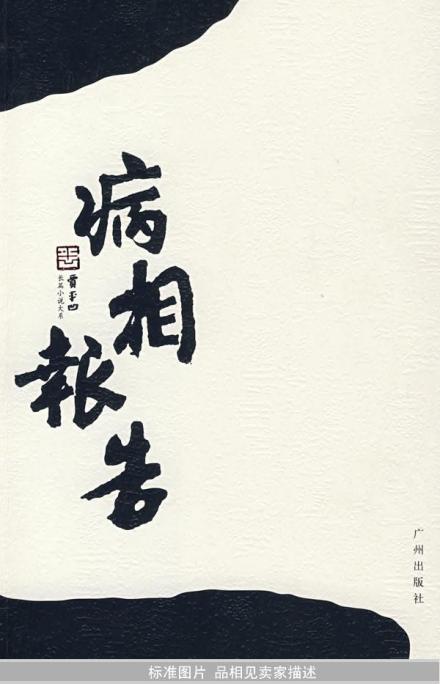 病相報告
賈平凹
长篇小说大系
广州出版社
标准图片 品相见卖家描述